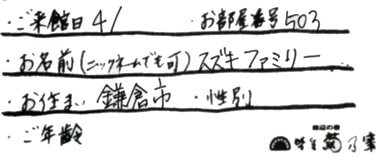 ・ご来館日 4/ ・お部屋番号 503
・お名前(ニックネームでも可) スズキファミリー
・お住まい 鎌倉市 ・性別
・ご年齢
海辺の宿